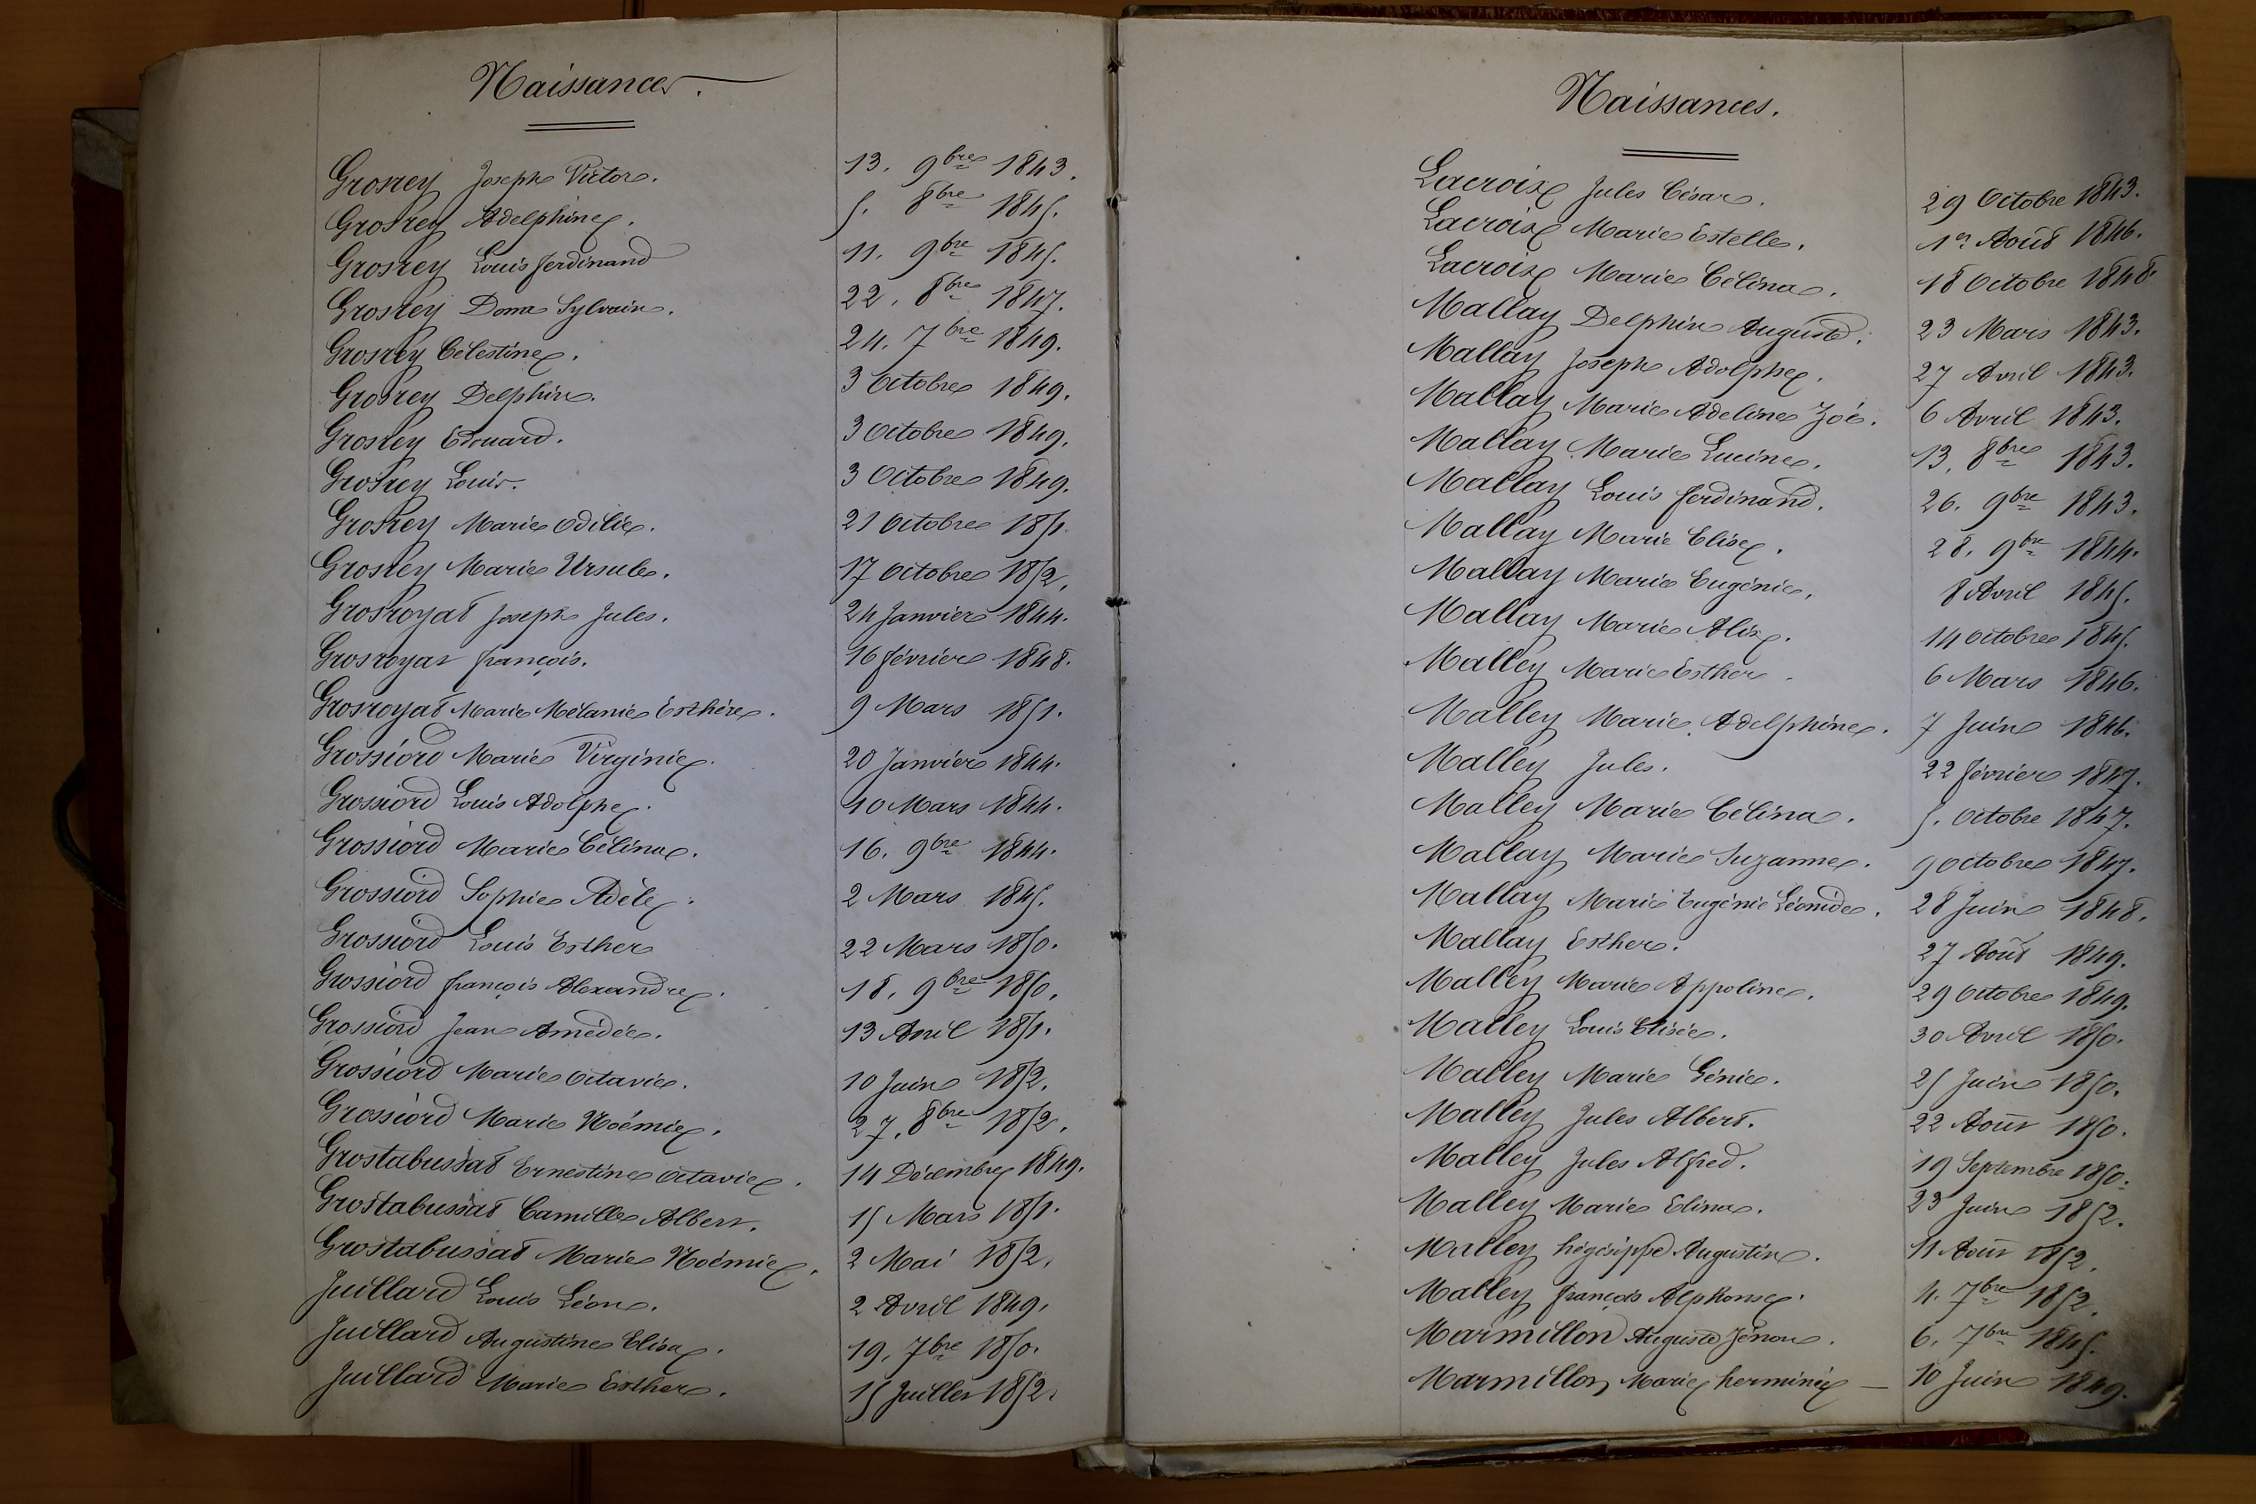 Naissances.
Grosrey Joseph Victor. 13. 9bre 1843.
Grosrey Adelphine. 5. 8bre 1845.
Grosrey Louis ferdinand 11. 9bre 1845.
Grosrey Dona Sylvain. 22. 8bre 1847.
Grosrey Célestine. 24. 7bre 1849.
Grosrey Delphin. 3 Octobre 1849.
Grosrey Edouard. 3 Octobre 1849.
Grosrey Louis. 3 Octobre 1849.
Grosrey Marie Odilie. 21 Octobre 1851.
Grosrey Marie Ursule. 17 Octobre 1852.
Grosroyat Joseph Jules. 24 Janvier 1844.
Grosroyat françois. 16 février 1848.
Grosroyat Marie Mélanie Esthère. 9 Mars 1851.
Grossiord Marie Virginie. 20 Janvier 1844.
Grossiord Louis Adolphe. 10 Mars 1844.
Grossiord Marie Célina. 16. 9bre 1844.
Grossiord Sophie Adèle. 2 Mars 1845.
Grossiord Louis Esther 22 Mars 1850.
Grossiord françois Alexandre. 18. 9bre 1850.
Grossiord Jean Amédée. 13 Avril 1851.
Grossiord Marie Octavie. 10 Juin 1852.
Grossiord Marie Noémie. 27. 8bre 1852.
Grostabussiat Ernestine Octavie. 14 Décembre 1849.
Grostabussiat Camille Albert. 15 Mars 1851.
Grostabussiat Marie Noémie. 2 Mai 1852.
Juillard Louis Léon. 2 Avril 1849.
Juillard Augustine Elisa. 19. 7bre 1850.
Juillard Marie Esther. 15 Juillet 1852.
Naissances.
Lacroix Jules César. 29 Octobre 1843.
Lacroix Marie Estelle. 1er Août 1846.
Lacroix Marie Célina. 18 Octobre 1848.
Mallay Delphin Auguste. 23 Mars 1843.
Mallay Joseph Adolphe. 27 Avril 1843.
Mallay Marie Adeline Zoé. 6 Avril 1843.
Mallay Marie Lucine. 13. 8bre 1843.
Mallay Louis ferdinand. 26. 9bre 1843.
Mallay Marie Elise. 28. 9bre 1844.
Mallay Marie Eugénie. 8 Avril 1845.
Mallay Marie Alix. 14 Octobre 1845.
Malley Marie Esther. 6 Mars 1846.
Malley Marie Adelphine. 7 Juin 1846.
Malley Jules. 22 février 1847.
Malley Marie Célina. 5. Octobre 1847.
Mallay Marie Suzanne. 9 Octobre 1847.
Mallay Marie Eugénie Léonide. 28 Juin 1848.
Mallay Esther. 27 Août 1849.
Malley Marie Appoline. 29 Octobre 1849.
Malley Louis Elisée. 30 Avril 1850.
Malley Marie Génie. 25 Juin 1850.
Malley Jules Albert. 22 Août 1850.
Malley Jules Alfred. 19 Septembre 1850.
Malley Marie Elina. 23 Juin 1852.
Malley hégésippe Augustin. 11 Août 1852.
Malley françois Alphonse. 4. 7bre 1852.
Marmillon Auguste Zénon. 6. 7bre 1845.
Marmillon Marie herminie — 10 Juin 1849.